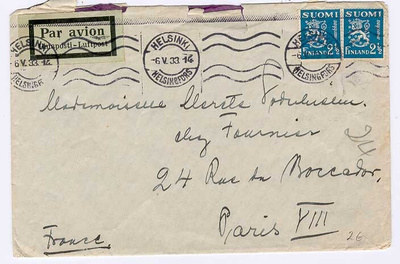 Par avion
Lentoposti - Luftpost
HELSINKI
6.V.33.14
HELSINGFORS
HELSINKI
-6.V.33.14
HELSINGFORS
SUOMI SUOMI
2½ 2½
FINLAND FINLAND
Mademoiselle
chez Fournier
24 Rue du Boccador
Paris VIII
France
26